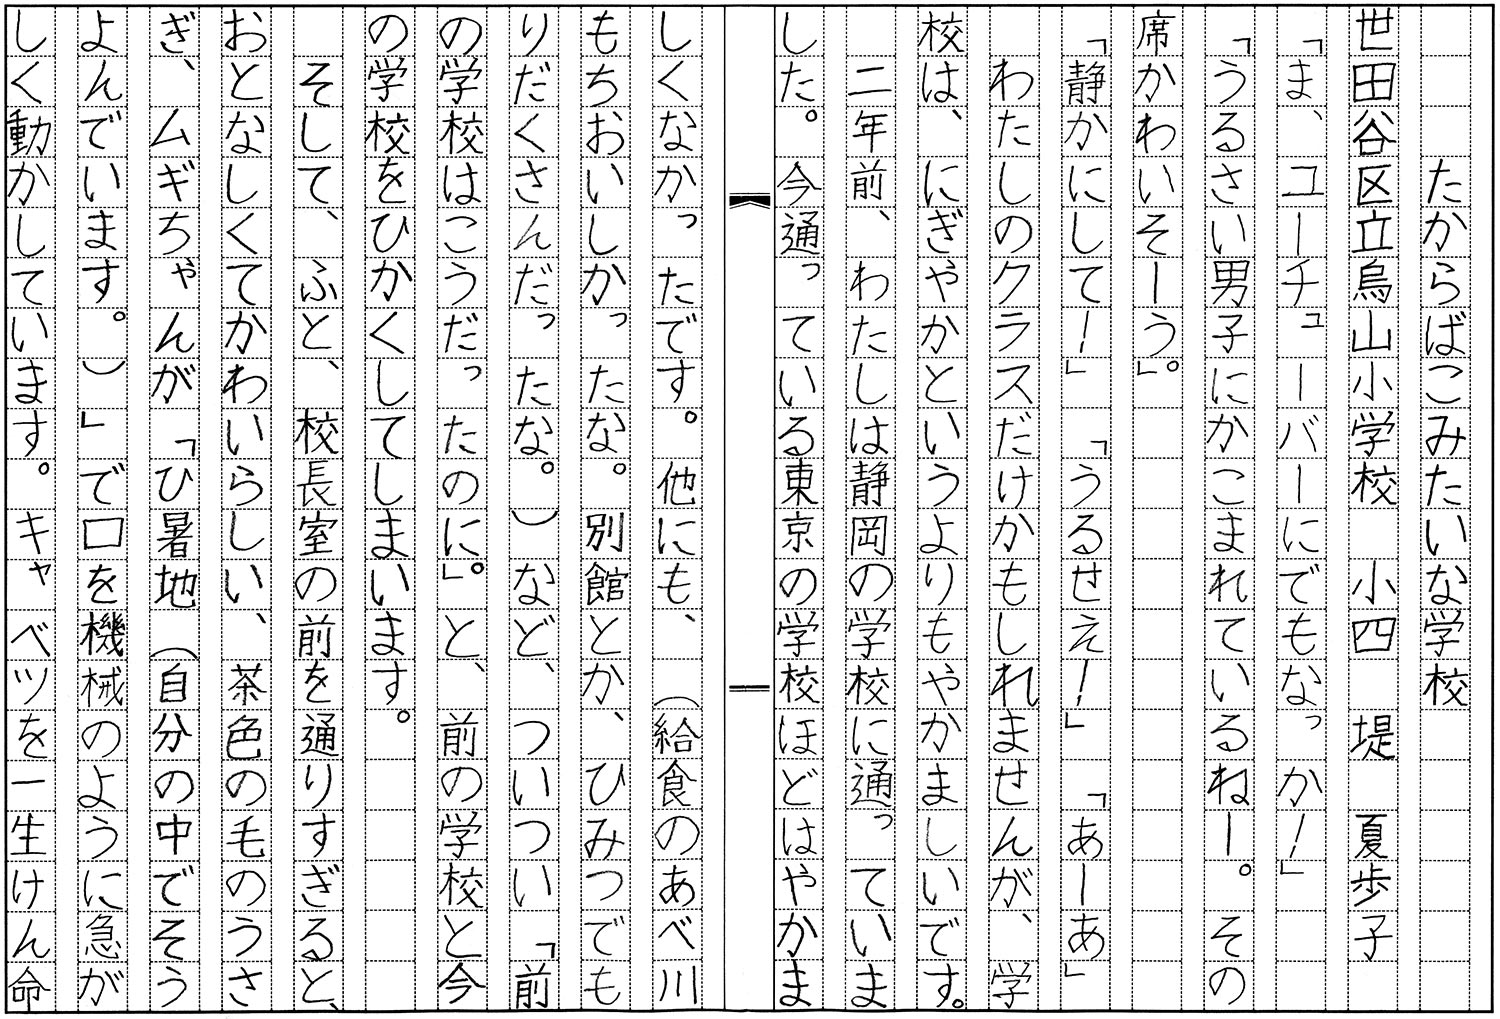 たからばこみたいな学校
世田谷区立烏山小学校　小四　堤　夏歩子
「ま、ユーチューバーにでもなっか！」
「うるさい男子にかこまれているねー。その
席かわいそーう。」
「静かにして！」「うるせえ！」「あーあ」
わたしのクラスだけかもしれませんが、学
校は、にぎやかというよりもやかましいです。
二年前、わたしは静岡の学校に通っていま
した。今通っている東京の学校ほどはやかま
しくなかったです。他にも、（給食のあべ川
もちおいしかったな。別館とか、ひみつでも
りだくさんだったな。）など、ついつい「前
の学校はこうだったのに。」と、前の学校と今
の学校をひかくしてしまいます。
そして、ふと、校長室の前を通りすぎると、
おとなしくてかわいらしい、茶色の毛のうさ
ぎ、ムギちゃんが「ひ暑地（自分の中でそう
よんでいます。）」で口を機械のように急が
しく動かしています。キャベツを一生けん命